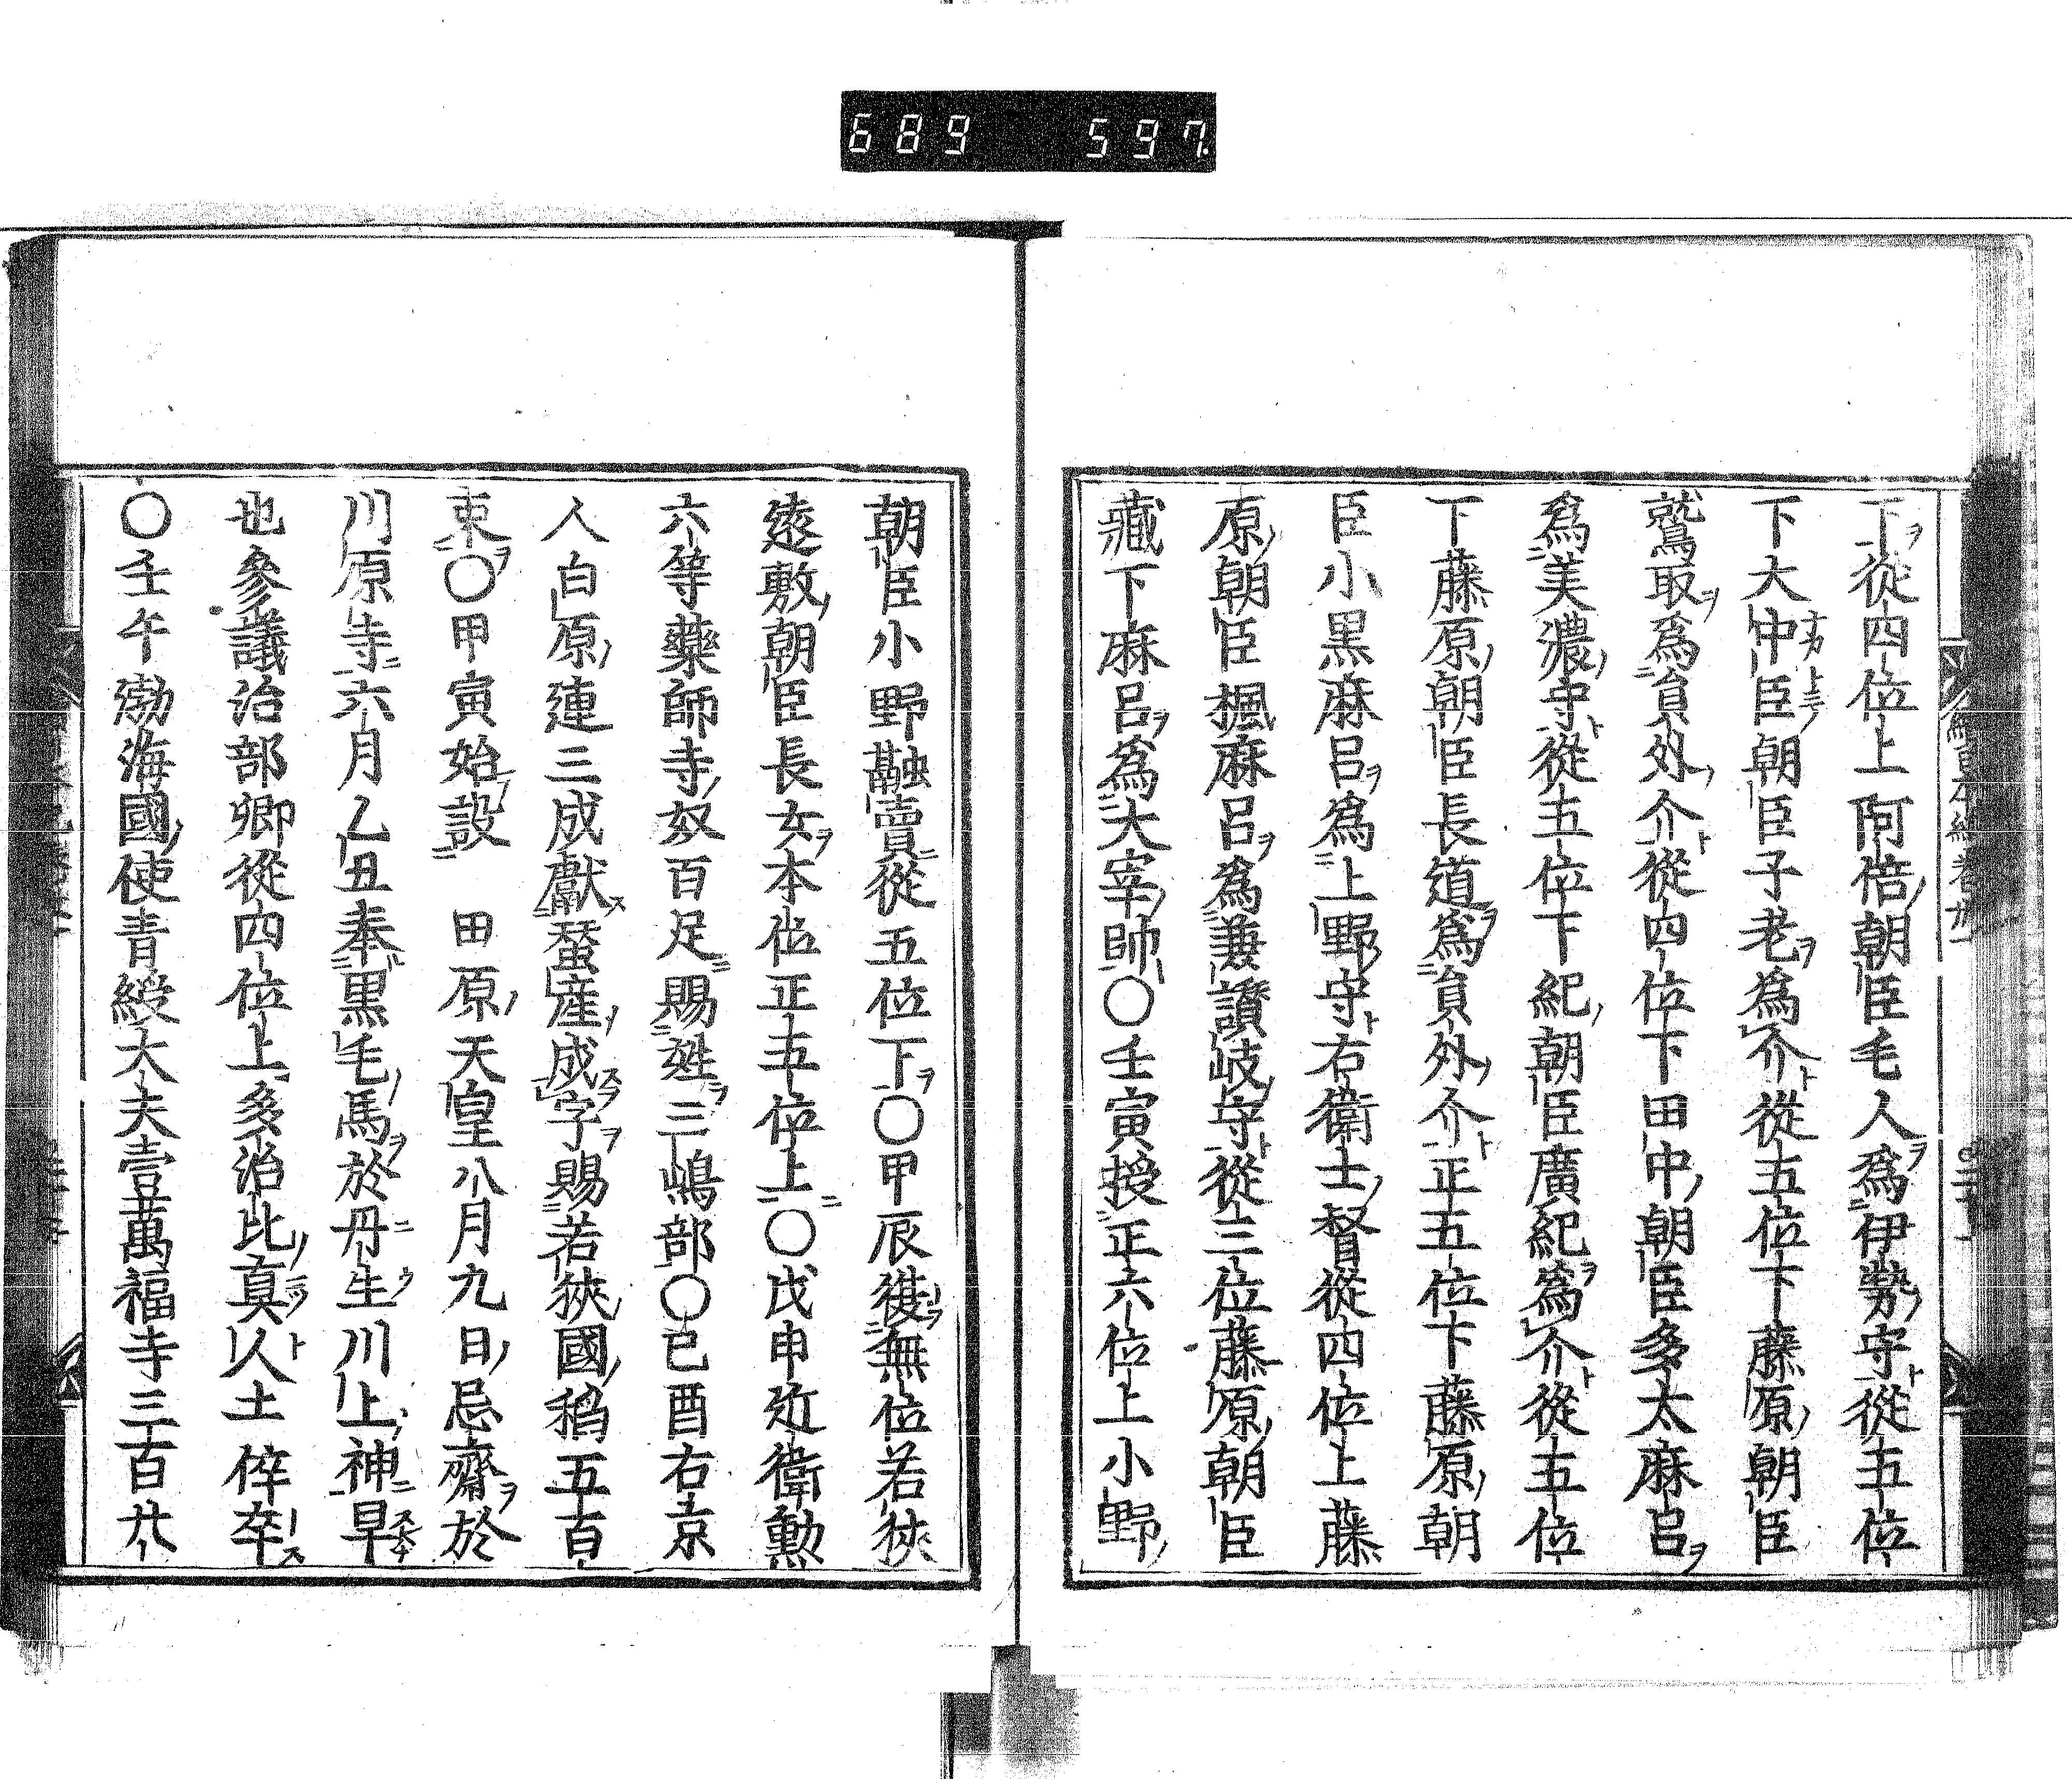 689 597.
下從四位上阿倍朝臣毛人爲伊勢守從五位
下大中臣朝臣子老爲介從五位下藤原朝臣
鷲取爲負外介從四位下田中朝臣多太麻呂
爲美濃守從五位下紀朝臣廣紀爲介從五位
下藤原朝臣長道爲負外介正五位下藤原朝
臣小黒麻呂爲上野守右衛士督從四位上藤
原朝臣楓麻呂爲兼讃岐守從三位藤原朝臣
藏下麻呂爲大宰帥〇壬寅授正六位上小野
朝臣小野虵賣從五位下〇甲辰復無位若狹
遠敷朝臣長女本位正五位上〇戊申近衛勲
六等藥師寺奴百足賜姓三嶋部〇己酉右京
人白原連三成獻蚕産成字賜若狹國稻五百
束〇甲寅始設 田原天皇八月九日忌齋於
川原寺六月乙丑奉黒毛馬於丹生川上神旱
也參議治部卿從四位上多治比真人土作卒
〇壬午渤海國使青綬大夫壹萬福寺三百廿